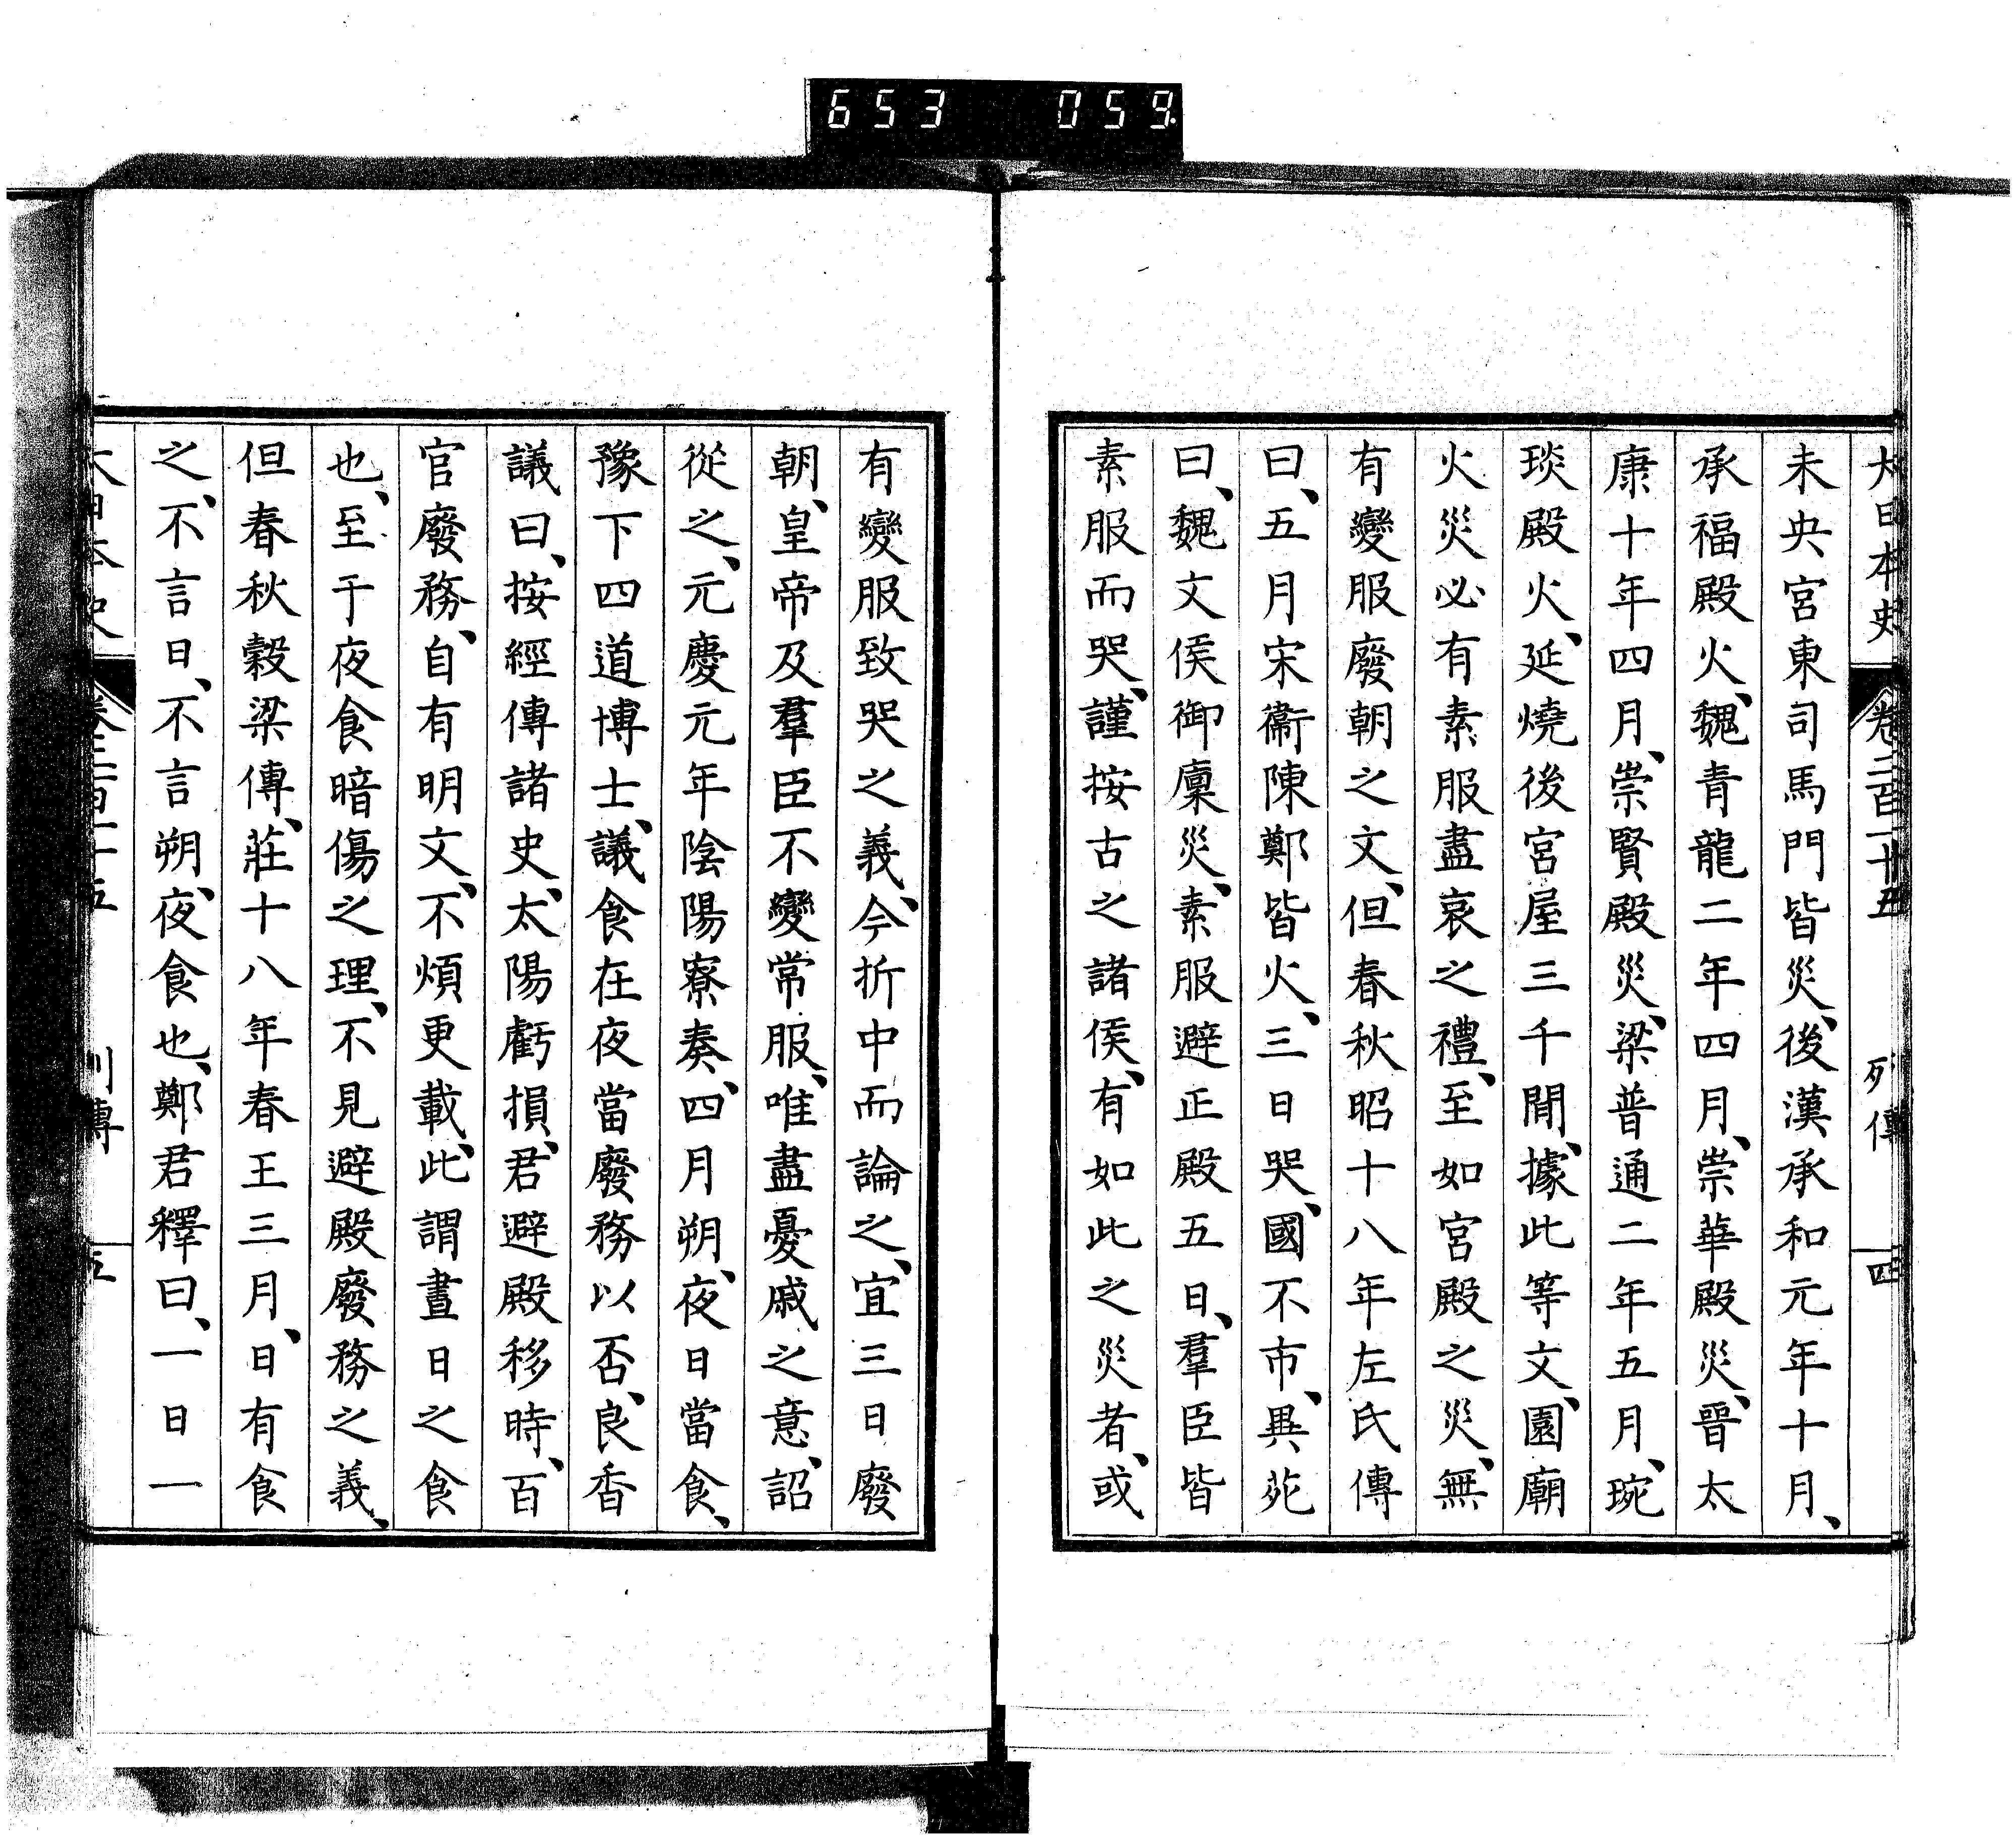 653 059.
大日本史 卷二百一十五 列傳 四
未央宮東司馬門皆災、後漢承和元年十月、
承福殿火、魏青龍二年四月、崇華殿災、晉太
康十年四月、崇賢殿災、梁普通二年五月、琬
琰殿火、延燒後宮屋三千間、據此等文、園廟
火災必有素服盡哀之禮、至如宮殿之災、無
有變服廢朝之文、但春秋昭十八年左氏傳
曰、五月宋衞陳鄭皆火、三日哭、國不市、異苑
曰、魏文侯御廩災、素服避正殿五日、羣臣皆
素服而哭、謹按古之諸侯、有如此之災者、或
有變服致哭之義、今折中而論之、宜三日廢
朝、皇帝及羣臣不變常服、唯盡憂戚之意、詔
從之、元慶元年陰陽寮奏、四月朔、夜日當食、
豫下四道博士、議食在夜當廢務以否、良香
議曰、按經傳諸史、太陽虧損、君避殿移時、百
官廢務、自有明文、不煩更載、此謂晝日之食
也、至于夜食暗傷之理、不見避殿廢務之義、
但春秋穀梁傳、莊十八年春王三月、日有食
之、不言日、不言朔、夜食也、鄭君釋曰、一日一
大日本史 卷二百一十五 列傳 五